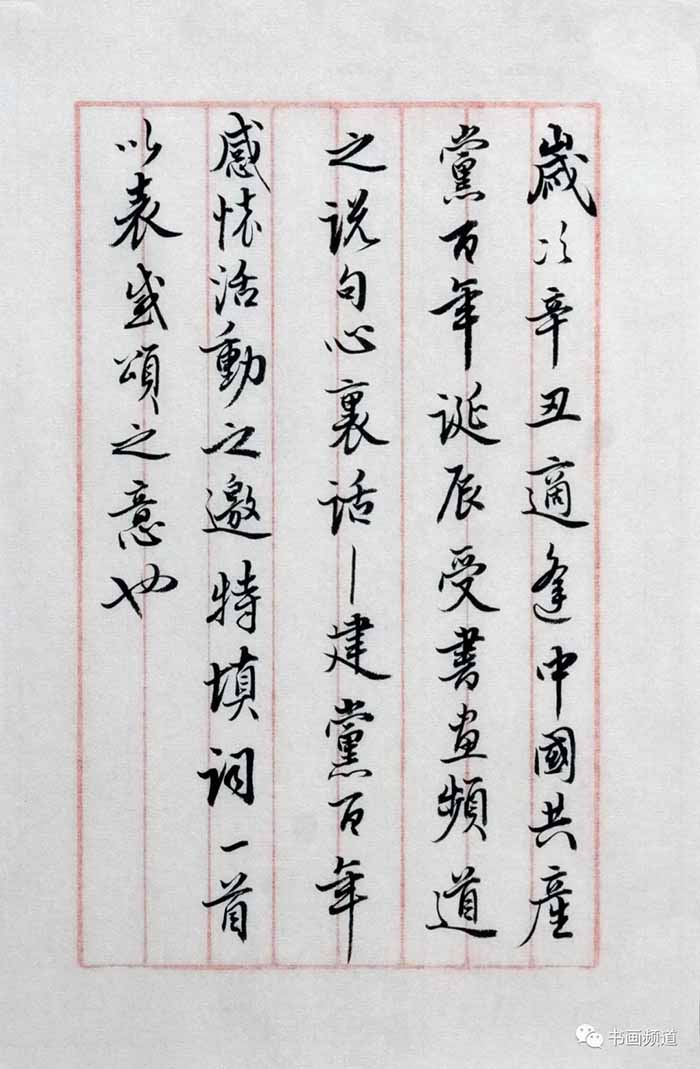 歲次辛丑適逢中國共産
黨百年誕辰受書畫頻道
之説句心裏話—建黨百年
感懷活動之邀特填词一首
以表盛頌之意也
书画频道